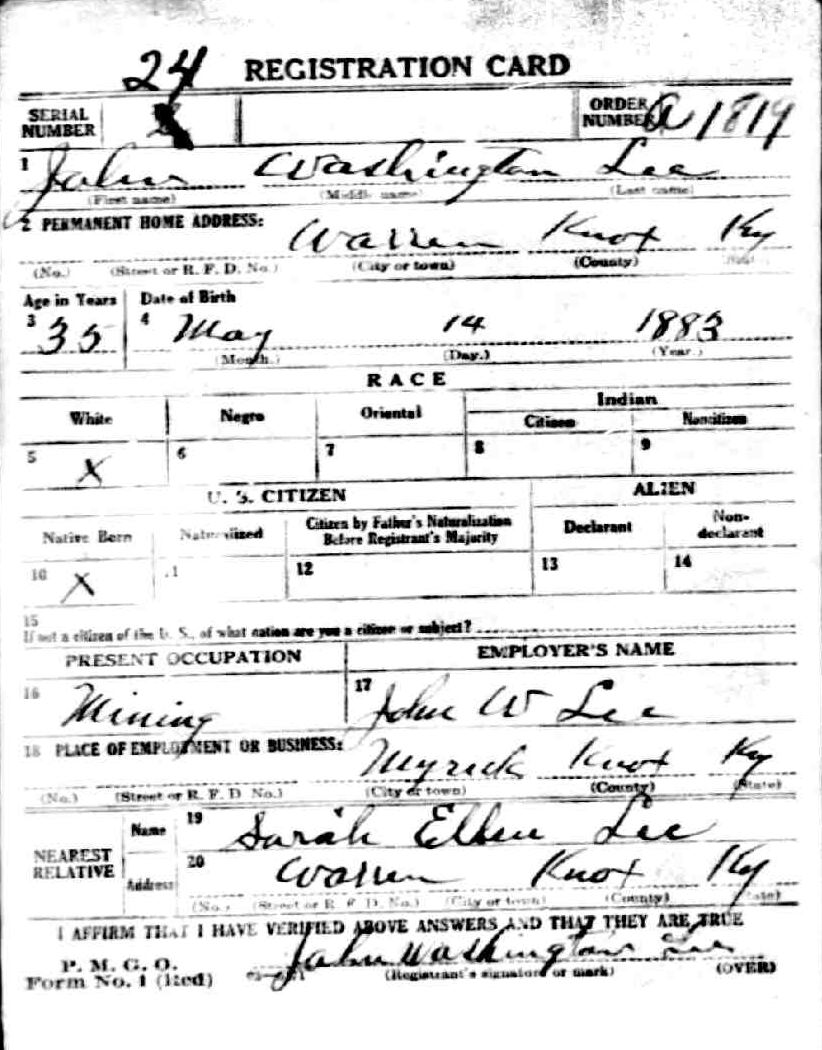 24 REGISTRATION CARD
SERIAL NUMBER ORDER NUMBER A 1819
1 John Washington Lee
(First name) (Middle name) (Last name)
2 PERMANENT HOME ADDRESS: Warren Knox Ky
(No.) (Street or R. F. D. No.) (City or town) (County) (State)
Age in Years Date of Birth
3 35 4 May 14 1883
(Month.) (Day.) (Year.)
RACE
White Negro Oriental Indian
Citizen Noncitizen
5 X 6 7 8 9
U. S. CITIZEN ALIEN
Native Born Naturalized Citizen by Father's Naturalization Before Registrant's Majority Declarant Non-declarant
10 X 11 12 13 14
15
If not a citizen of the U. S., of what nation are you a citizen or subject?
PRESENT OCCUPATION EMPLOYER'S NAME
16 Mining 17 John W Lee
18 PLACE OF EMPLOYMENT OR BUSINESS: Myrick Knox Ky
(No.) (Street or R. F. D No.) (City or town) (County) (State)
NEAREST RELATIVE
Name 19 Sarah Ellen Lee
Address 20 Warren Knox Ky
(No.) (Street or R. F. D. No.) (City or town) (County) (State)
I AFFIRM THAT I HAVE VERIFIED ABOVE ANSWERS AND THAT THEY ARE TRUE
P. M. G. O.
Form No. 1 (Red) John Washington Lee
(Registrant's signature or mark) (OVER)